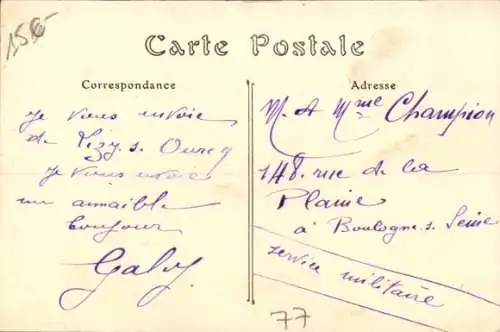 15€
Carte Postale
Correspondance
Je vous envoie
de Lizy s. Ourcq
Je vous envoie
un aimaible
bonjour
Gaby
Adresse
M. & Mme Champion
148. rue de la
Plaine
à Boulogne. s. Seine
service militaire
77